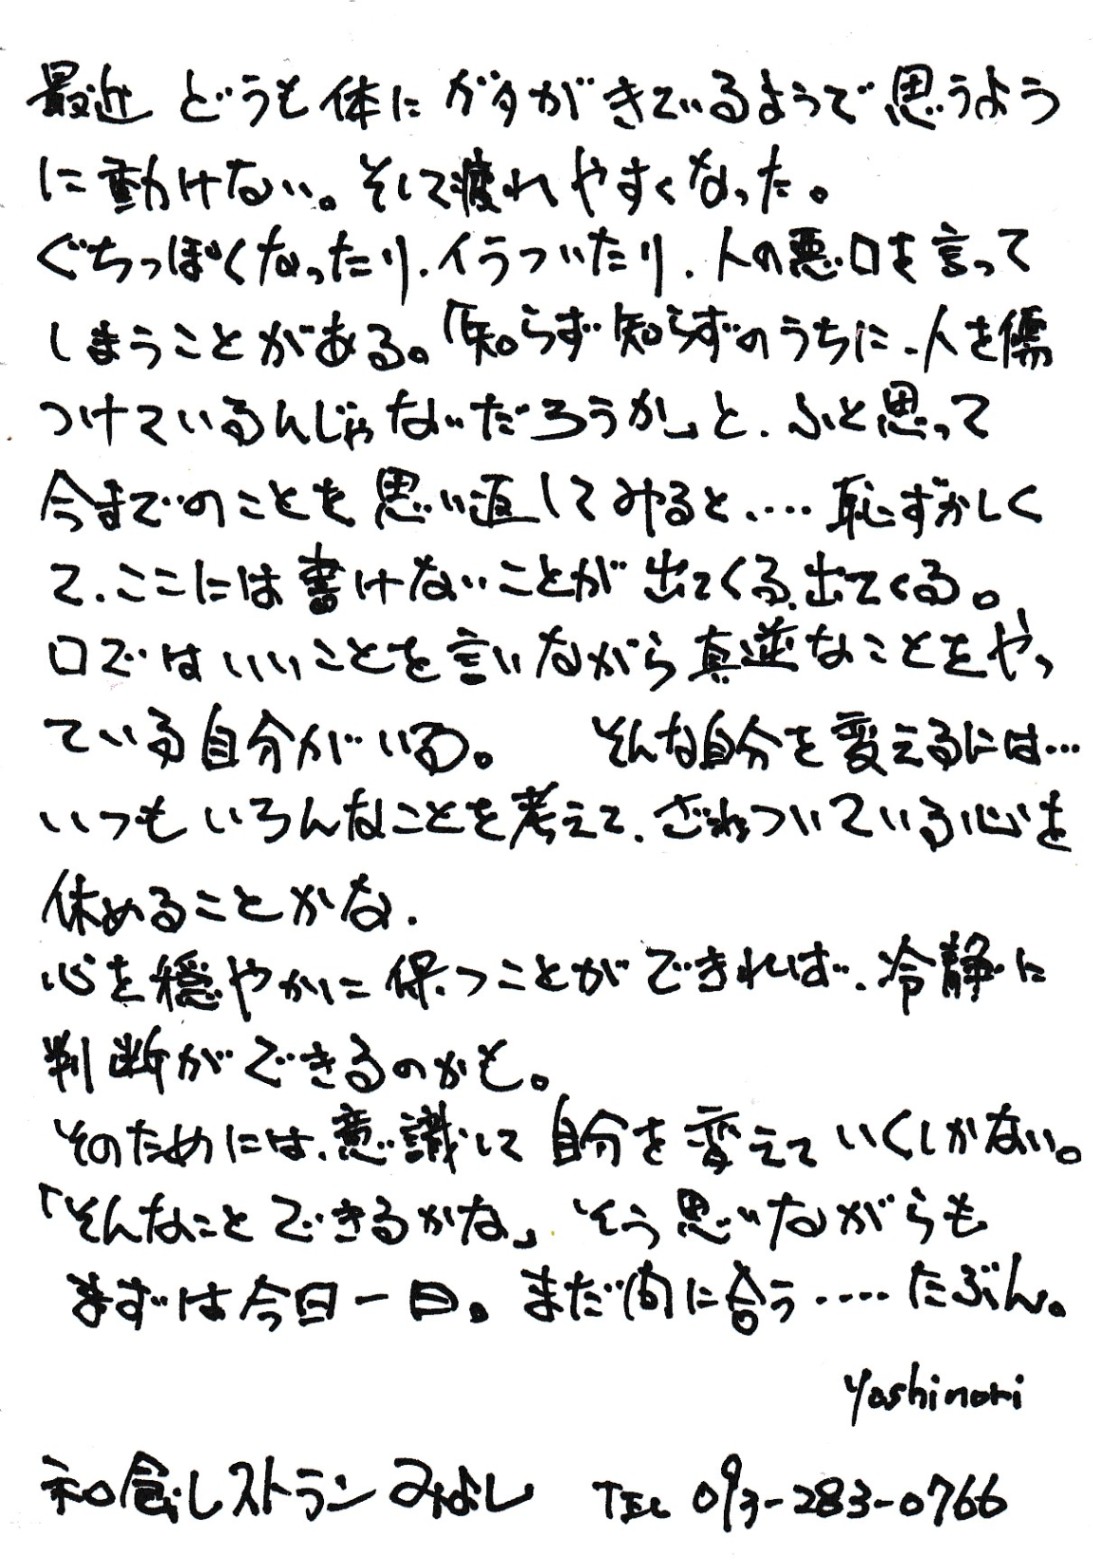 最近 どうも体に ガタがきているようで思うよう
に動けない。そして疲れやすくなった。
ぐちっぽくなったり、イラついたり、人の悪口を言って
しまうことがある。「知らず知らずのうちに、人を傷
つけているんじゃないだろうか」と、ふと思って
今までのことを思い返してみると、…恥ずかしく
て、ここには書けないことが出てくる、出てくる。
口ではいいことを言いながら真逆なことをやっ
ている自分がいる。 そんな自分を変えるには…
いつもいろんなことを考えて、ざわついている心を
休めることかな.
心を穏やかに保つことができれば、冷静に
判断ができるのかも。
そのためには、意識して自分を変えていくしかない。
「そんなことできるかな」そう思いながらも
まずは今日一日。まだ間に合う‥‥たぶん。
Yoshinori
和食レストランみよし TEL 093-283-0766